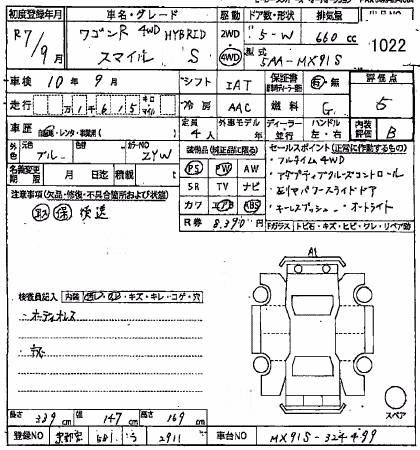 初度登録年月 車名・グレード 駆動 ドア数・形状 排気量
R7/9月 ワゴンR 4WD HYBRID スマイル S 2WD 4WD 5-W 660cc 1022
型式 5AA-MX91S
車検 10年9月 シフト IAT 保証書 有・無 評価点
走行 万14615 キロ マイル 冷房 AAC 燃料 G 5
車歴 自家用・レンタ・事業用 定員 4人 外車モデル 年 ディーラー 並行 ハンドル 左・右 内装評価 B
外色 元色 ブルー 色替 カラーNO ZYW
装備品(純正品に限る) セールスポイント(正常に作動するもの)
名義変更期限 月 日迄 積載 t
PS PW AW
SR TV ナビ
カワ エアB ABS
R券 8,390円
フルタイム4WD
アダプティブクルーズコントロール
両リヤパワースライドドア
キーレスプッシュ オートライト
Fガラス トビ石・キズ・ヒビ・ワレ・リペア跡
注意事項(欠品・修復・不具合箇所および状態)
取 保 後送
A1
検査員記入 内装 ・キズ・キレ・コゲ・穴
オーディオレス
キズ
スペア
長さ 339cm 幅 147cm 高さ 169cm
登録NO 京都 581 う 2911 車台NO MX91S-324499